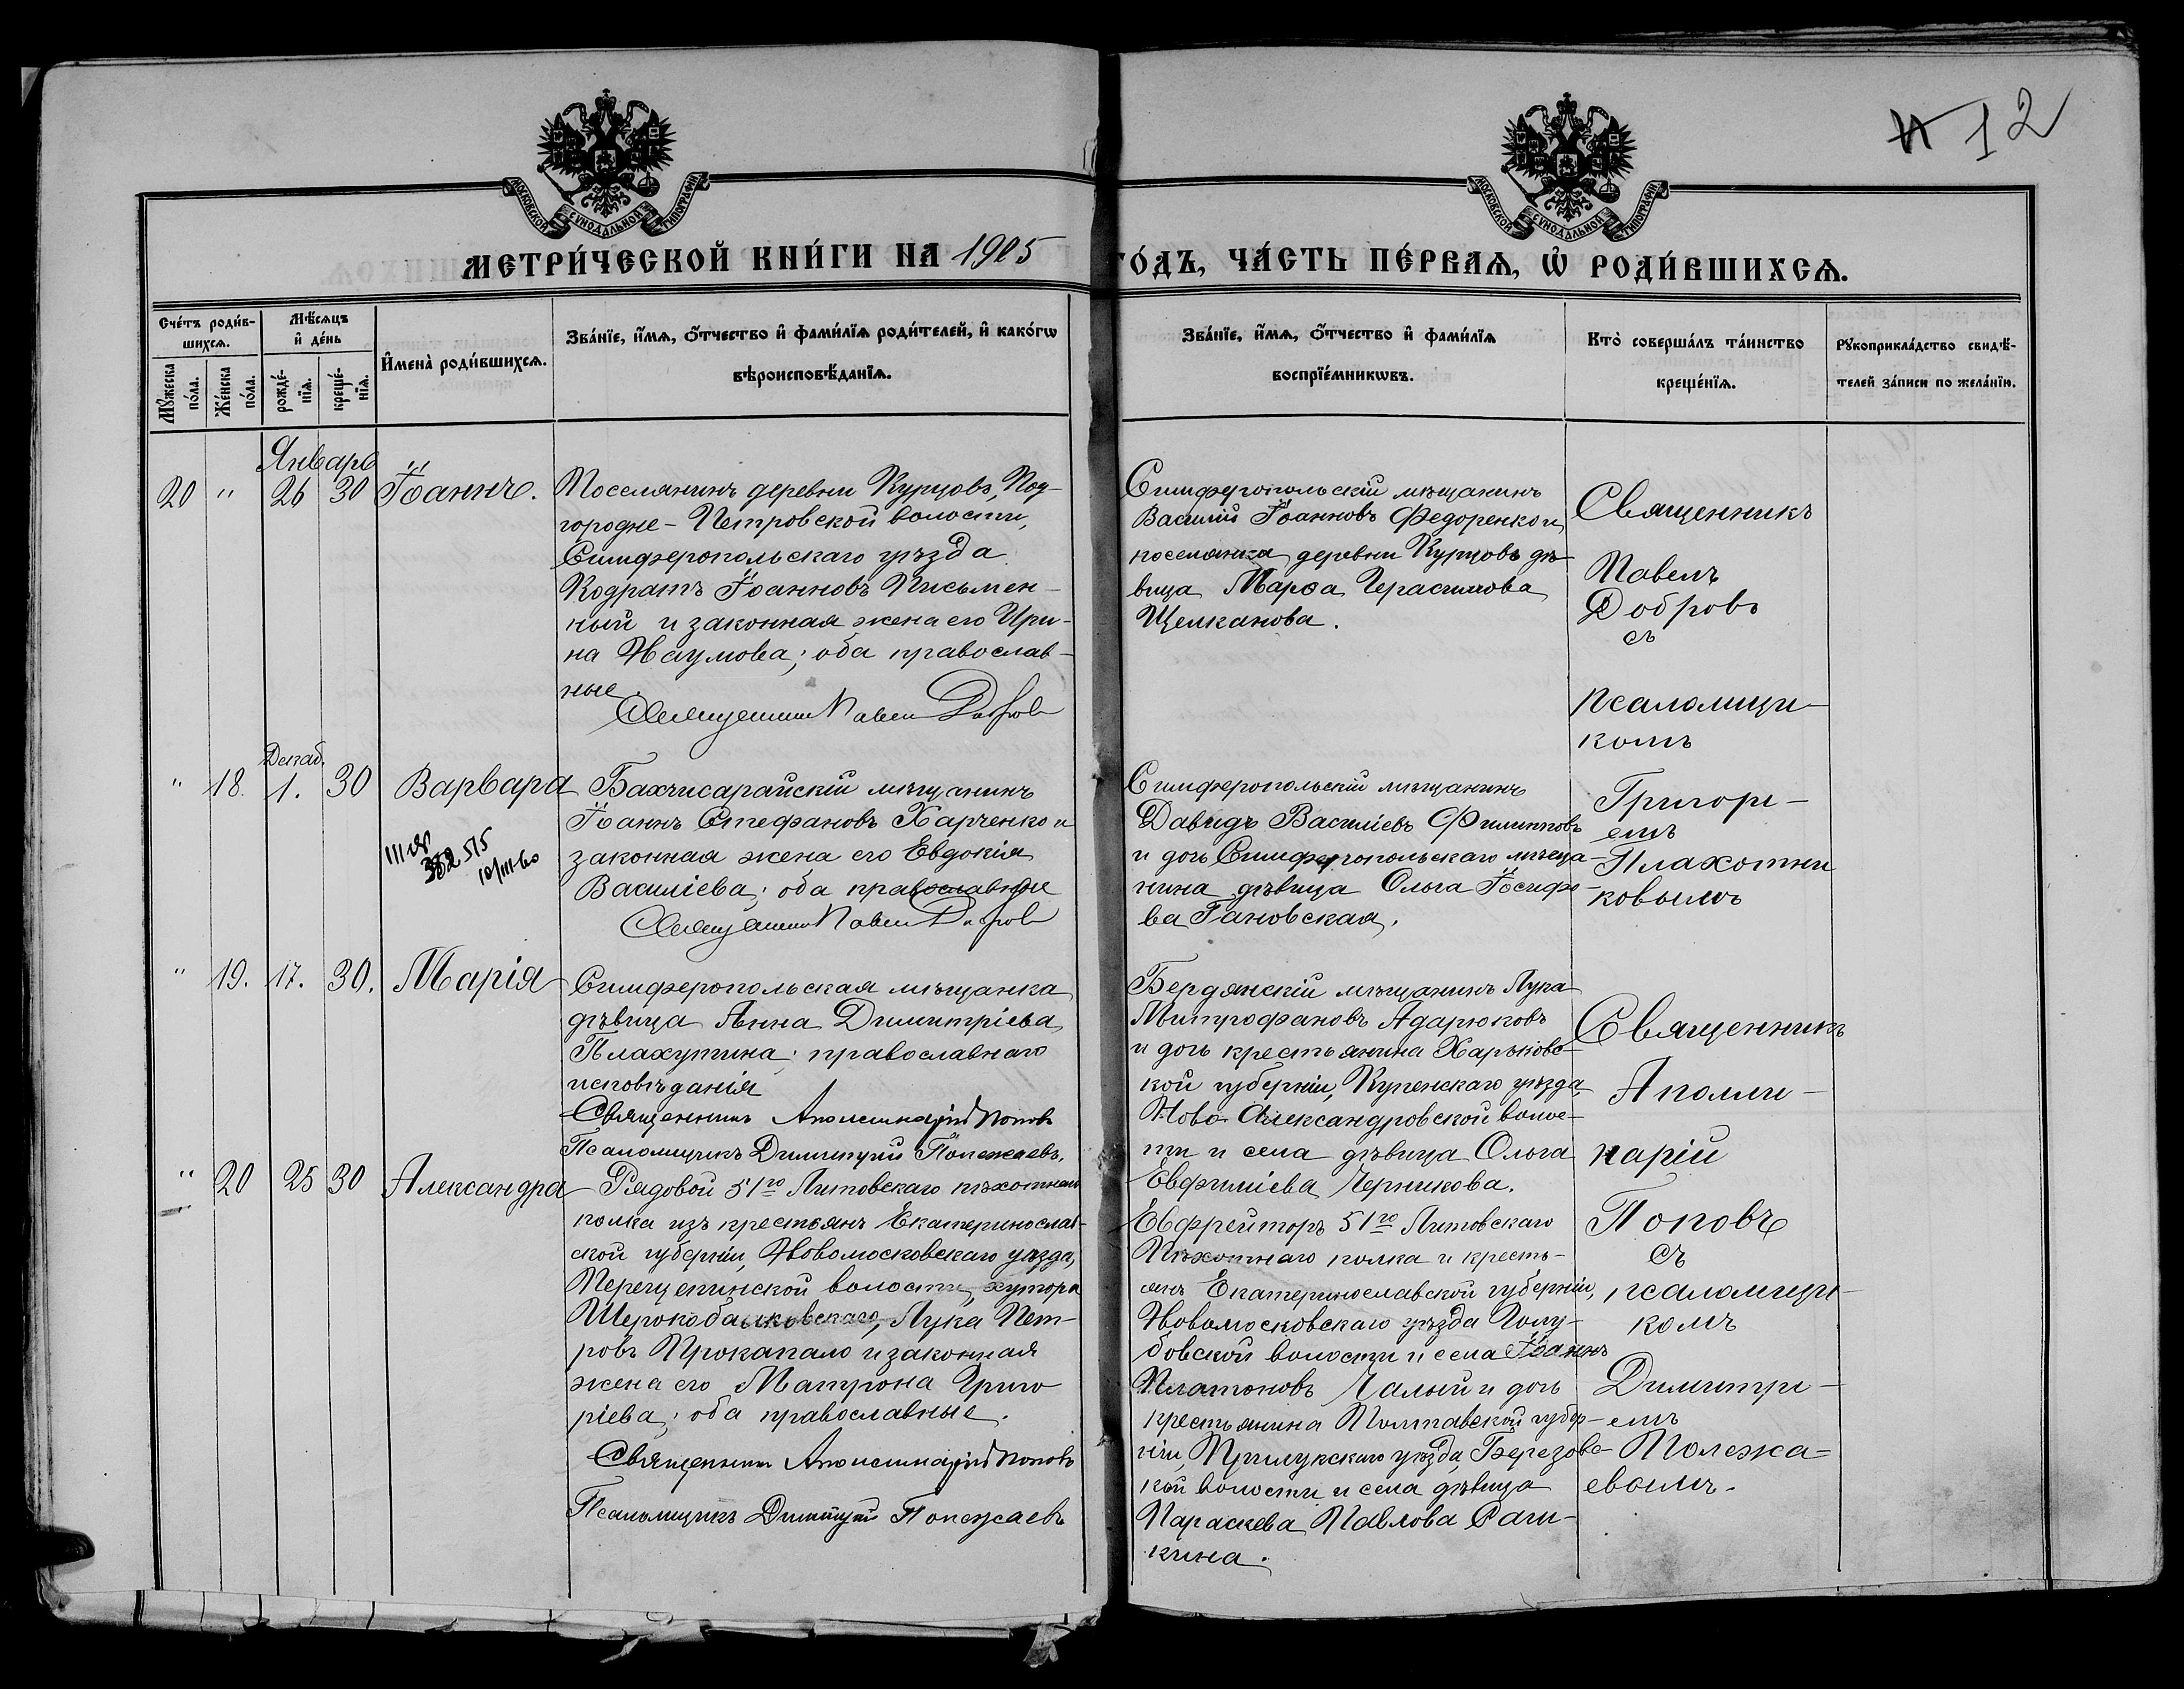 12
МОСКОВСКОЙ СѴНОДАЛЬНОЙ ТИПОГРАФІИ
МОСКОВСКОЙ СѴНОДАЛЬНОЙ ТИПОГРАФІИ
МЕТРИ́ЧЕСКОЙ КНИ́ГИ НА 1905 ГО́ДЪ, ЧА́СТЬ ПЕ́РВАѦ, Ѡ҆ РОДИ́ВШИХСѦ.
Сче́тъ роди́в-
шихсѧ.
Мꙋ́жеска по́ла.
Же́нска по́ла.
Мѣ́сѧцъ
и҆ де́нь
рожде́-
нїѧ.
креще́-
нїѧ.
И҆мена̀ роди́вшихсѧ.
Зва́нїе, и҆́мѧ, ѻ҆́тчество и҆ фами́лїѧ роди́телей, и҆ како́гѡ
вѣроисповѣ́данїѧ.
Зва́нїе, и҆́мѧ, ѻ҆́тчество и҆ фами́лїѧ
воспрїе́мникѡвъ.
Кто̀ соверша́лъ та́инство
креще́нїѧ.
Рꙋкоприкла́дство свидѣ́-
телей за́писи по жела́нїю.
Январь
20 " 26 30 Іоаннъ.
Поселянинъ деревни Курцовъ, Под-
городне-Петровской волости,
Симферопольскаго уѣзда
Кодратъ Іоанновъ Письмен-
ный и законная жена его Ири-
на Наумова; оба православ-
ные.
Священникъ Павелъ Добровъ
Симферопольскій мѣщанинъ
Василій Іоанновъ Федоренко и
поселянка деревни Курцовъ дѣ-
вица Марѳа Герасимова
Щелканова.
Священникъ
Павелъ
Добровъ
съ
псаломщи-
комъ
Григорі-
емъ
Плахотни
ковымъ
Декаб.
" 18. 1. 30 Варвара
515
10/III-60
Бахчисарайскій мѣщанинъ
Іоаннъ Стефановъ Харченко и
законная жена его Евдокія
Василіева; оба православные
Священникъ Павелъ Добровъ
Симферопольскій мѣщанинъ
Давидъ Василіевъ Филипповъ
и дочь Симферопольскаго мѣща-
нина дѣвица Ольга Іосифо-
ва Гановская.
" 19. 17. 30. Марія
Симферопольская мѣщанка
дѣвица Анна Димитріева
Плахутина; православнаго
исповѣданія
Священникъ Аполлинарій Поповъ
Псаломщикъ Димитрій Полежаевъ.
Бердянскій мѣщанинъ Лука
Митрофановъ Адарюковъ
и дочь крестьянина Харьковс-
кой губерніи, Купенскаго уѣзда,
Ново-Александровской волос-
ти и села дѣвица Ольга
Евфиміева Черникова.
Священникъ
Аполли-
нарій
Поповъ
съ
псаломщи-
комъ
Димитрі-
емъ
Полежа-
евымъ.
" 20 25 30 Александра
Рядовой 51го Литовскаго пѣхотнаго
полка изъ крестьянъ Екатеринослав-
ской губерніи, Новомосковскаго уѣзда,
Перещепинской волости, хутора
Лука Пет-
ровъ Прокапало и законная
жена его Матрона Григо
ріева; оба православные.
Священникъ Аполлинарій Поповъ
Псаломщикъ Димитрій Полежаевъ
Евфрейторъ 51го Литовскаго
Пѣхотнаго полка и кресть-
янъ Екатеринославской губерніи,
Новомосковскаго уѣзда Голу-
бовской волости и села Іоаннъ
Платоновъ Чалый и дочь
крестьянина Полтавской губер-
ніи, Прилукскаго уѣзда, Березовс-
кой волости и села дѣвица
Параскева Павлова Саш-
кина.